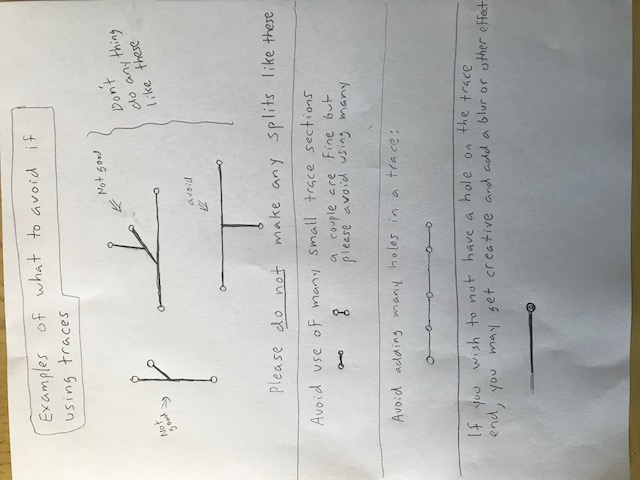 Examples of what to avoid if
using traces
Not
good →
Not good
avoid
Don't any thing
do any these
like these
Please do not make any splits like these
Avoid use of many small trace sections
a couple are fine but
please avoid using many
Avoid adding many holes in a trace:
If you wish to not have a hole on the trace
end, you may get creative and add a blur or other effect